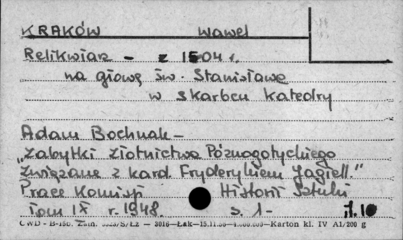 KRAKÓW Wawel
Relikwiarz - z 1504 r.
na głowę św. Stanisława
w skarbcu katedry
Adam Bochnak -
„Zabytki złotnictwa późnogotyckiego
związane z kard. Fryderykiem Jagiell."
Prace Komisji Historii Sztuki
Tom IX r. 1948. s. 1-
CWD - B-150, Zam. S/Łz - 3016-Łak- Karton kl. IV A1/200 g